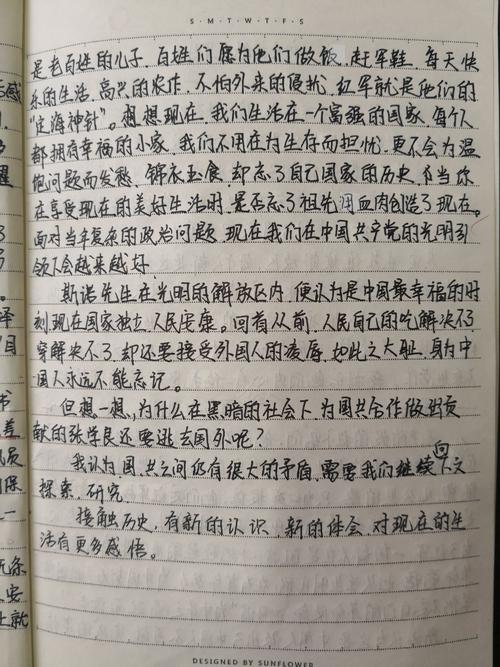 S·M·T·W·T·F·S
是老百姓的儿子，百姓们愿为他们做饭，赶军鞋，每天快
乐的生活，高兴的农作，不怕外来的侵扰，红军就是他们的
“定海神针”。想想现在，我们生活在一个富强的国家，每个人
都拥有幸福的小家，我们不用在为生存而担忧，更不会为温
饱问题而发愁，锦衣玉食，却忘了自己国家的历史，当你
在享受现在的美好生活时，是否忘了祖先用血肉创造了现在。
面对当年复杂的政治问题，现在我们在中国共产党的光明引
领下会越来越好
斯诺先生在光明的解放区内，便认为是中国最幸福的时
刻，现在国家独立，人民安康。回首从前，人民自己的吃解决不了
穿解决不了，却还要接受外国人的凌辱，如此之大耻，身为中
国人永远不能忘记。
但想一想，为什么在黑暗的社会下，为国共合作做出贡
献的张学良还要逃去国外呢？
我认为国、共之间仍有很大的矛盾，需要我们继续向下文
探索，研究
接触历史，有新的认识，新的体会，对现在的生
活有更多感悟。
DESIGNED BY SUNFLOWER